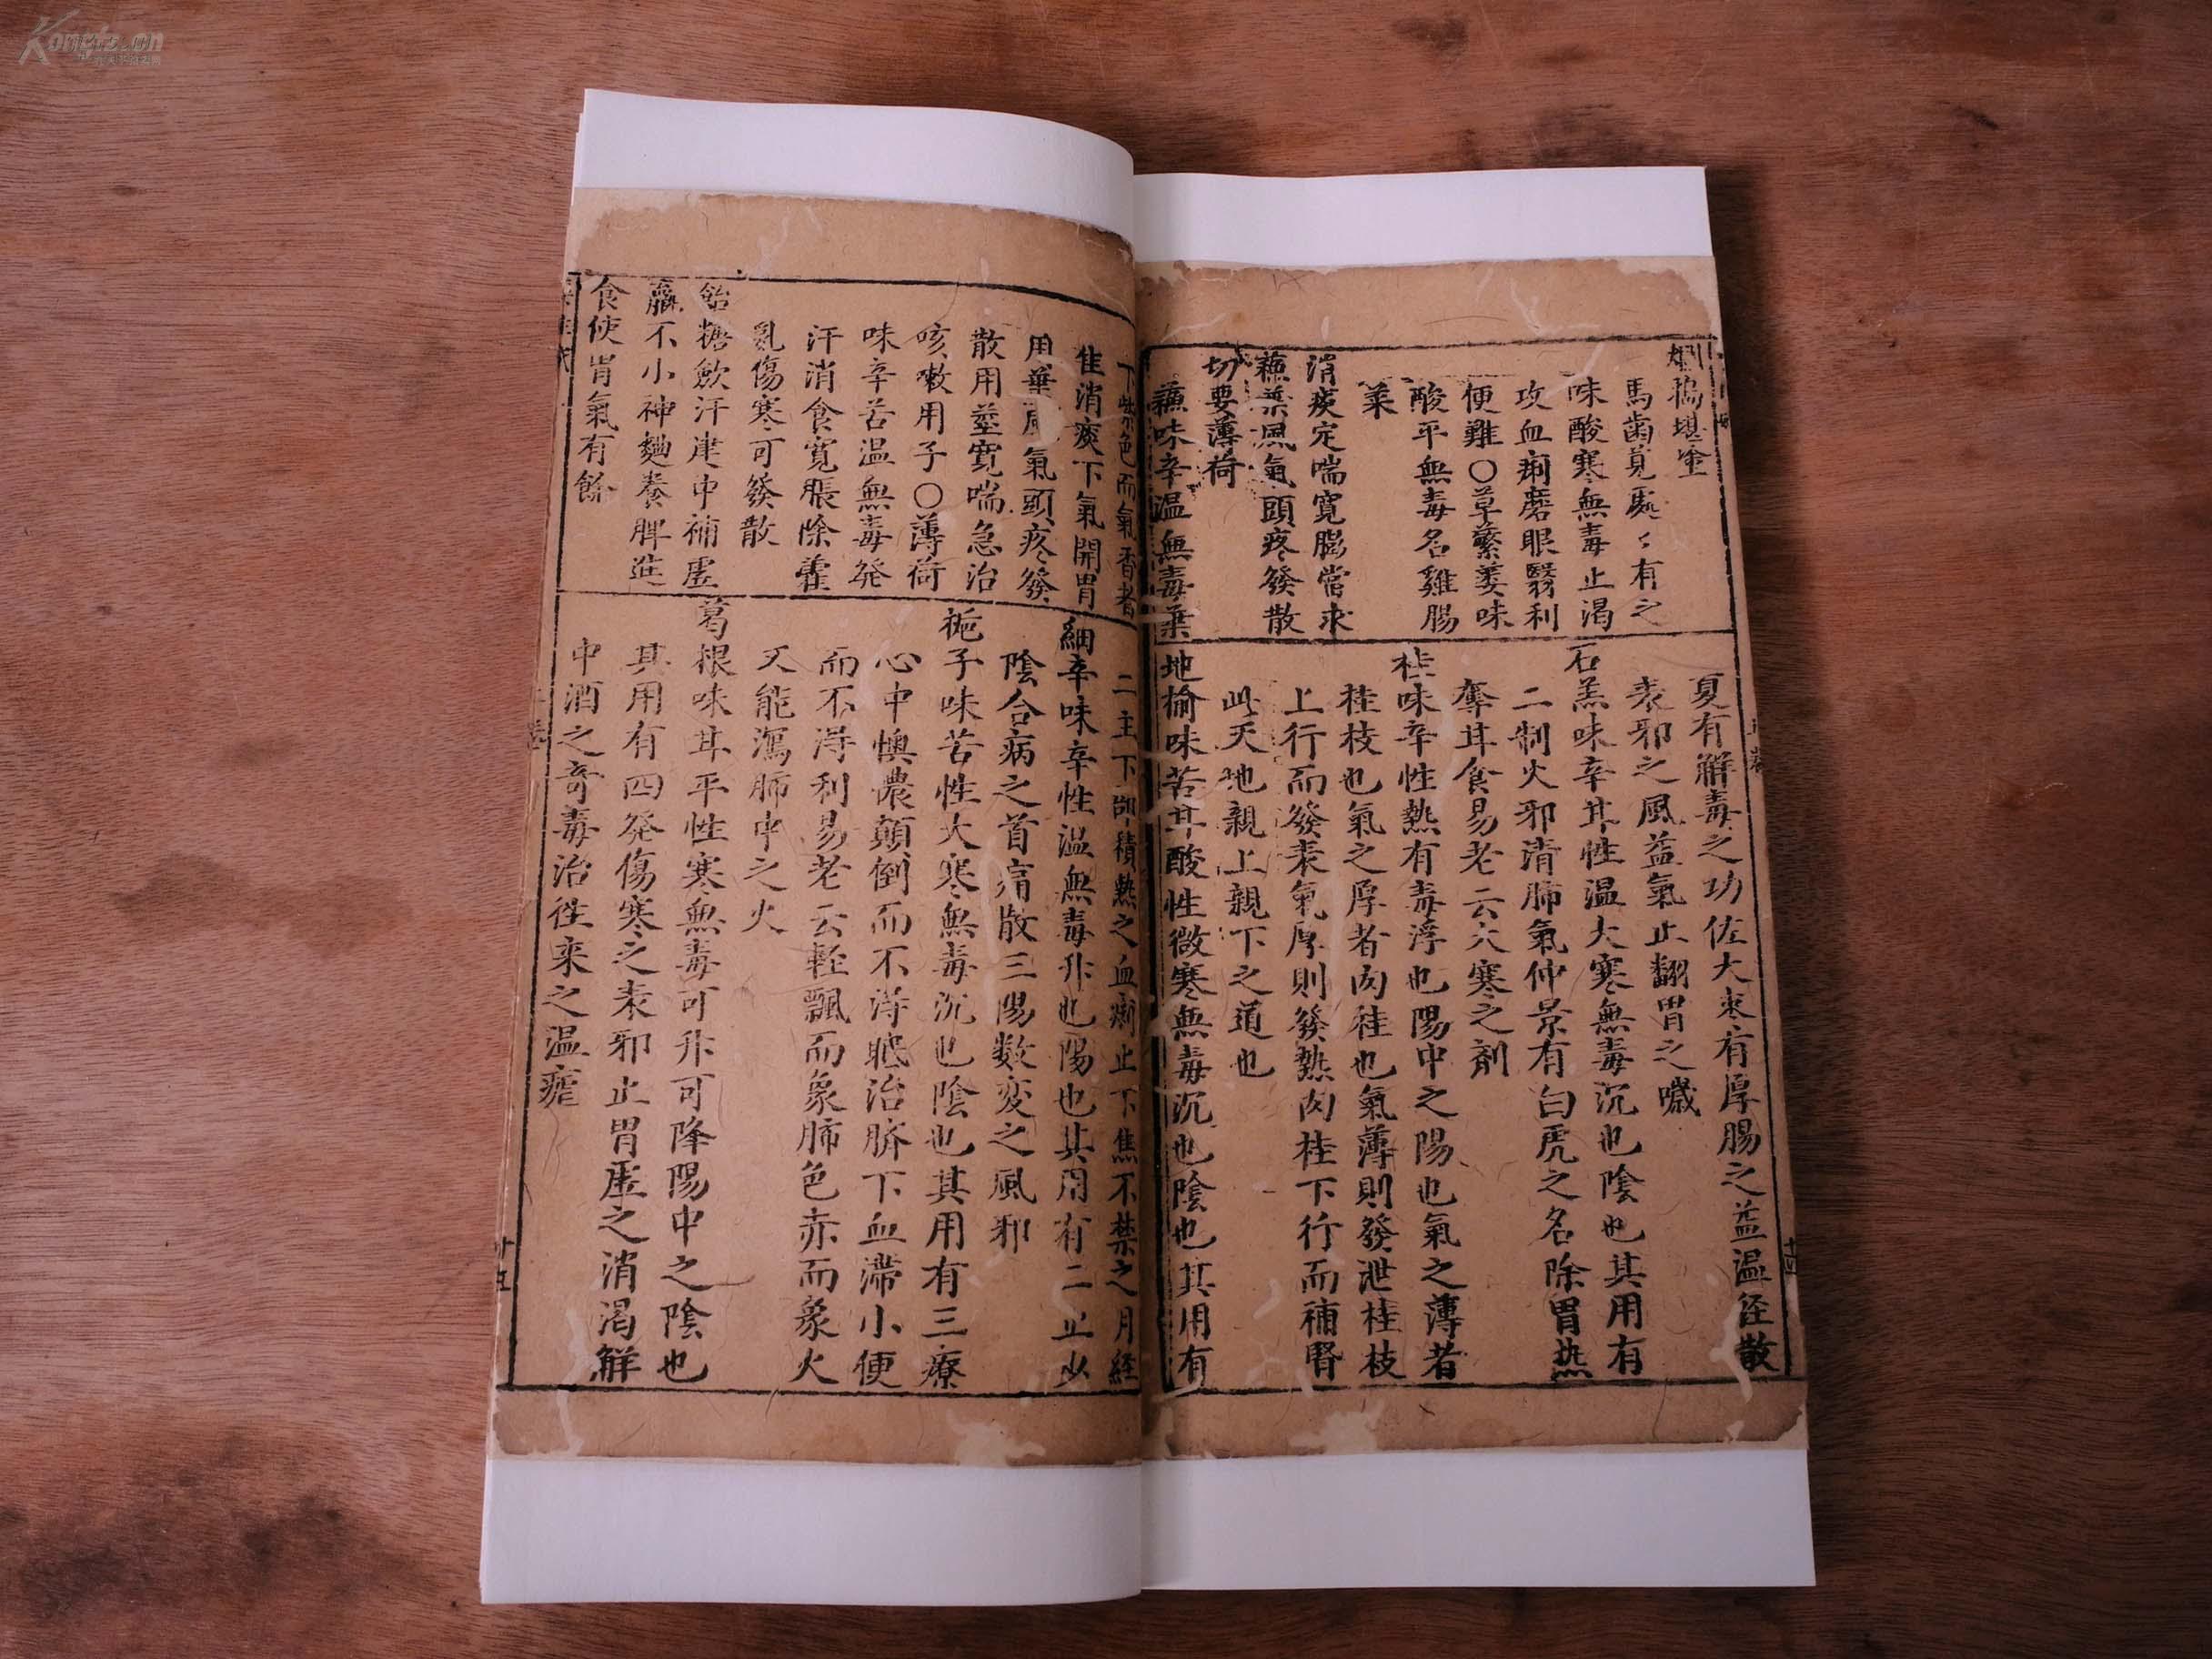 馬齒莧處〻有之
味酸寒無毒止渴
攻血痢磨眼翳利
便難〇草蘩蔞味
酸平無毒名雞腸
菜
消痰定喘寬腸當求
蘓葉風氣頭疼發散
切要薄荷
蘓味辛温無毒葉
夏有解毒之功佐大枣有厚腸之益温経散
表邪之風益氣止翻胃之噦
石羔味辛甘性温大寒無毒沉也陰也其用有
二制火邪清肺氣仲景有白虎之名除胃热
奪甘食易老云大寒之剤
桂味辛性熱有毒浮也陽中之陽也氣之薄者
桂枝也氣之厚者肉桂也氣薄則發泄桂枝
上行而發表氣厚則發熱肉桂下行而補腎
此天地親上親下之道也
地榆味苦甘酸性微寒無毒沉也陰也其用有
十四
下紫色而氣香者
佳消痰下氣開胃
用葉風氣頭疼發
散用莖寬喘急治
咳嗽用子〇薄荷
味辛苦温無毒発
汗消食寬脹除霍
亂傷寒可發散
飴糖歛汗建中補虛
羸不小神麯養脾進
食使胃氣有餘
二主下部積熱之血痢止下焦不禁之月経
細辛味辛性温無毒升也陽也其用有二止少
陰合病之首痛散三陽数变之風邪
梔子味苦性大寒無毒沉也陰也其用有三療
心中懊憹顛倒而不淂眠治臍下血滯小便
而不淂利易老云軽飄而象肺色赤而象火
又能瀉肺中之火
葛根味甘平性寒無毒可升可降陽中之陰也
其用有四発傷寒之表邪止胃虛之消渴解
中酒之奇毒治徃来之温瘧
十五